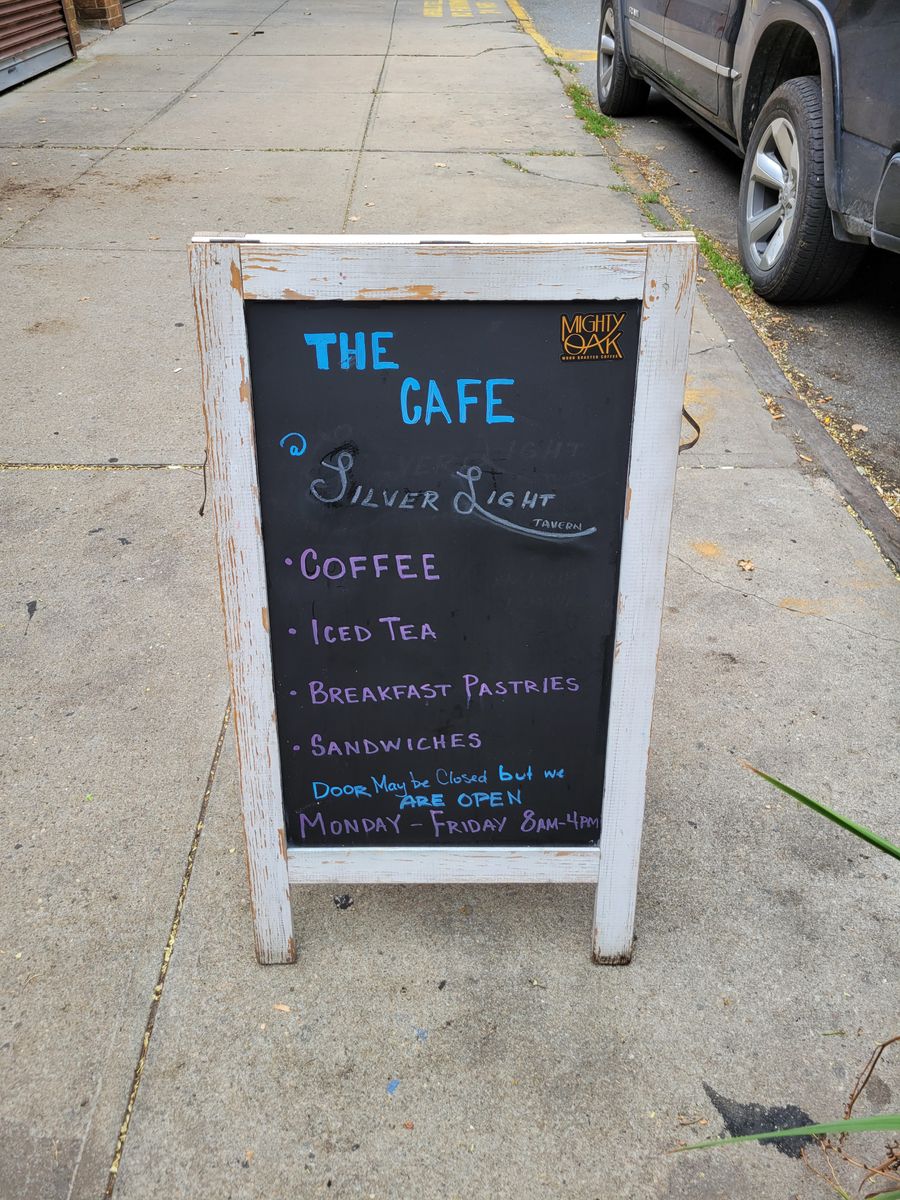 THE
CAFE
MIGHTY
OAK
WOOD ROASTED COFFEE
@
SILVER LIGHT
TAVERN
• COFFEE
• ICED TEA
• BREAKFAST PASTRIES
• SANDWICHES
DOOR May be Closed but we
ARE OPEN
MONDAY - FRIDAY 8AM-4PM